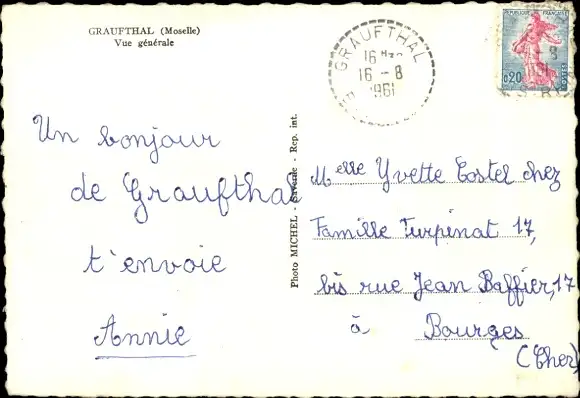 GRAUFTHAL (Moselle)
Vue générale
GRAUFTHAL
16 H
16 - 8
1961
RÉPUBLIQUE FRANÇAISE
0,20
POSTES
Un bonjour
de Graufthal
t'envoie
Annie
Photo MICHEL - Saverne - Rep. int.
Melle Yvette Costel chez
Famille Turpinat 17,
bis rue Jean Baffier, 17
à Bourges
(Cher)